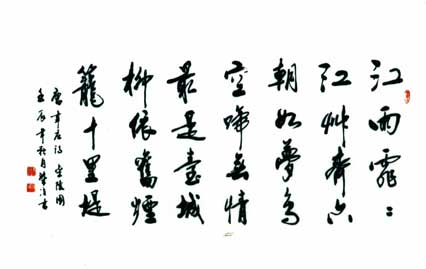 江雨霏〻
江艸齊六
朝如夢鳥
空啼無情
最是臺城
柳依舊煙
籠十里堤
唐韋莊詩 金陵圖
壬辰年秋月書